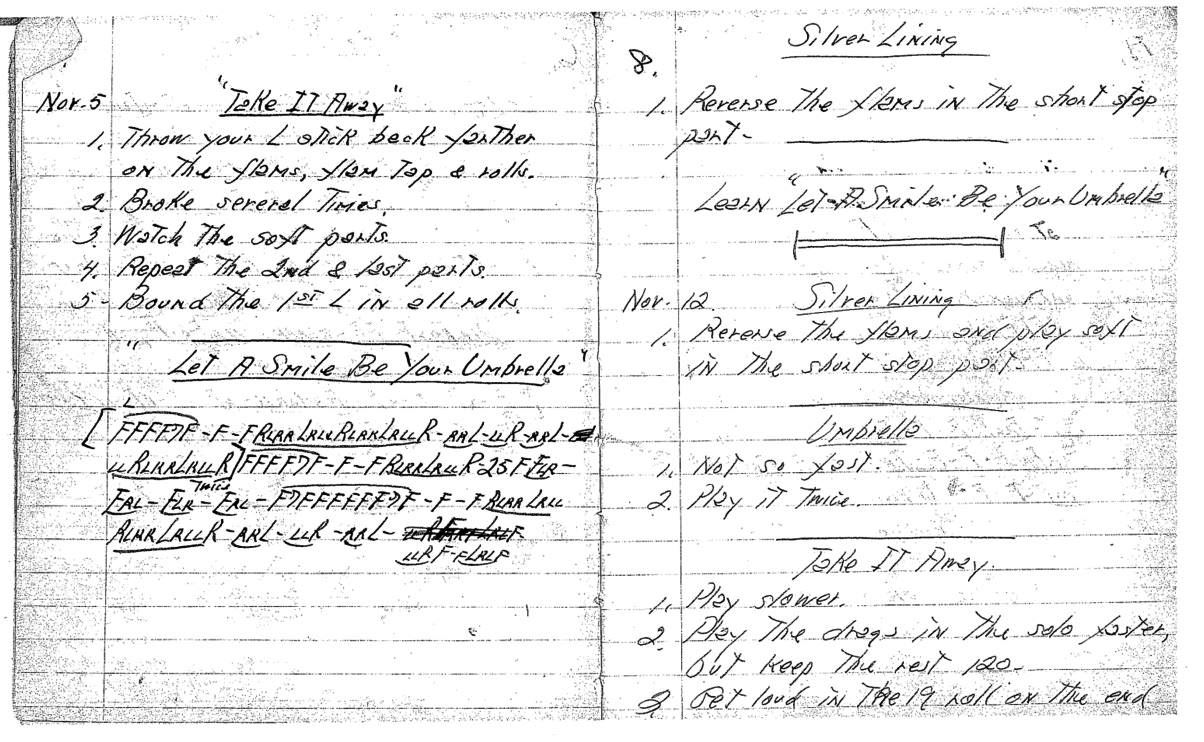 Nov. 5 "Take It Away"
1. Throw your L stick back farther
on the flams, flam tap & rolls.
2. Broke several times.
3. Watch the soft parts.
4. Repeat the 2nd & last parts.
5- Bound the 1st L in all rolls.
"Let A Smile Be Your Umbrella"
L
FFFF7F-F-FRLRRLRLLRLRRLRLLR-RRL-LLR-RRL-
LLRLRRLRLLR FFFF7F-F-FRLRRLRLLR-25 F FLR-
Twice
FRL-FLR-FRL-F7FFFFFF7F-F-FRLRRLRLL
RLRRLRLLR-RRL-LLR-RRL-
LLRF-FLRLF
8. Silver Lining
1. Reverse the flams in the short stop
part-
Learn "Let A Smile Be Your Umbrella"
Nov. 12. Silver Lining
1. Reverse the flams and play soft
in the short stop part-
Umbrella
1. Not so fast.
2. Play it twice.
Take It Away.
1. Play slower.
2. Play the drags in the solo faster,
but keep the rest 120-
3. Get loud in the 19 roll on the end